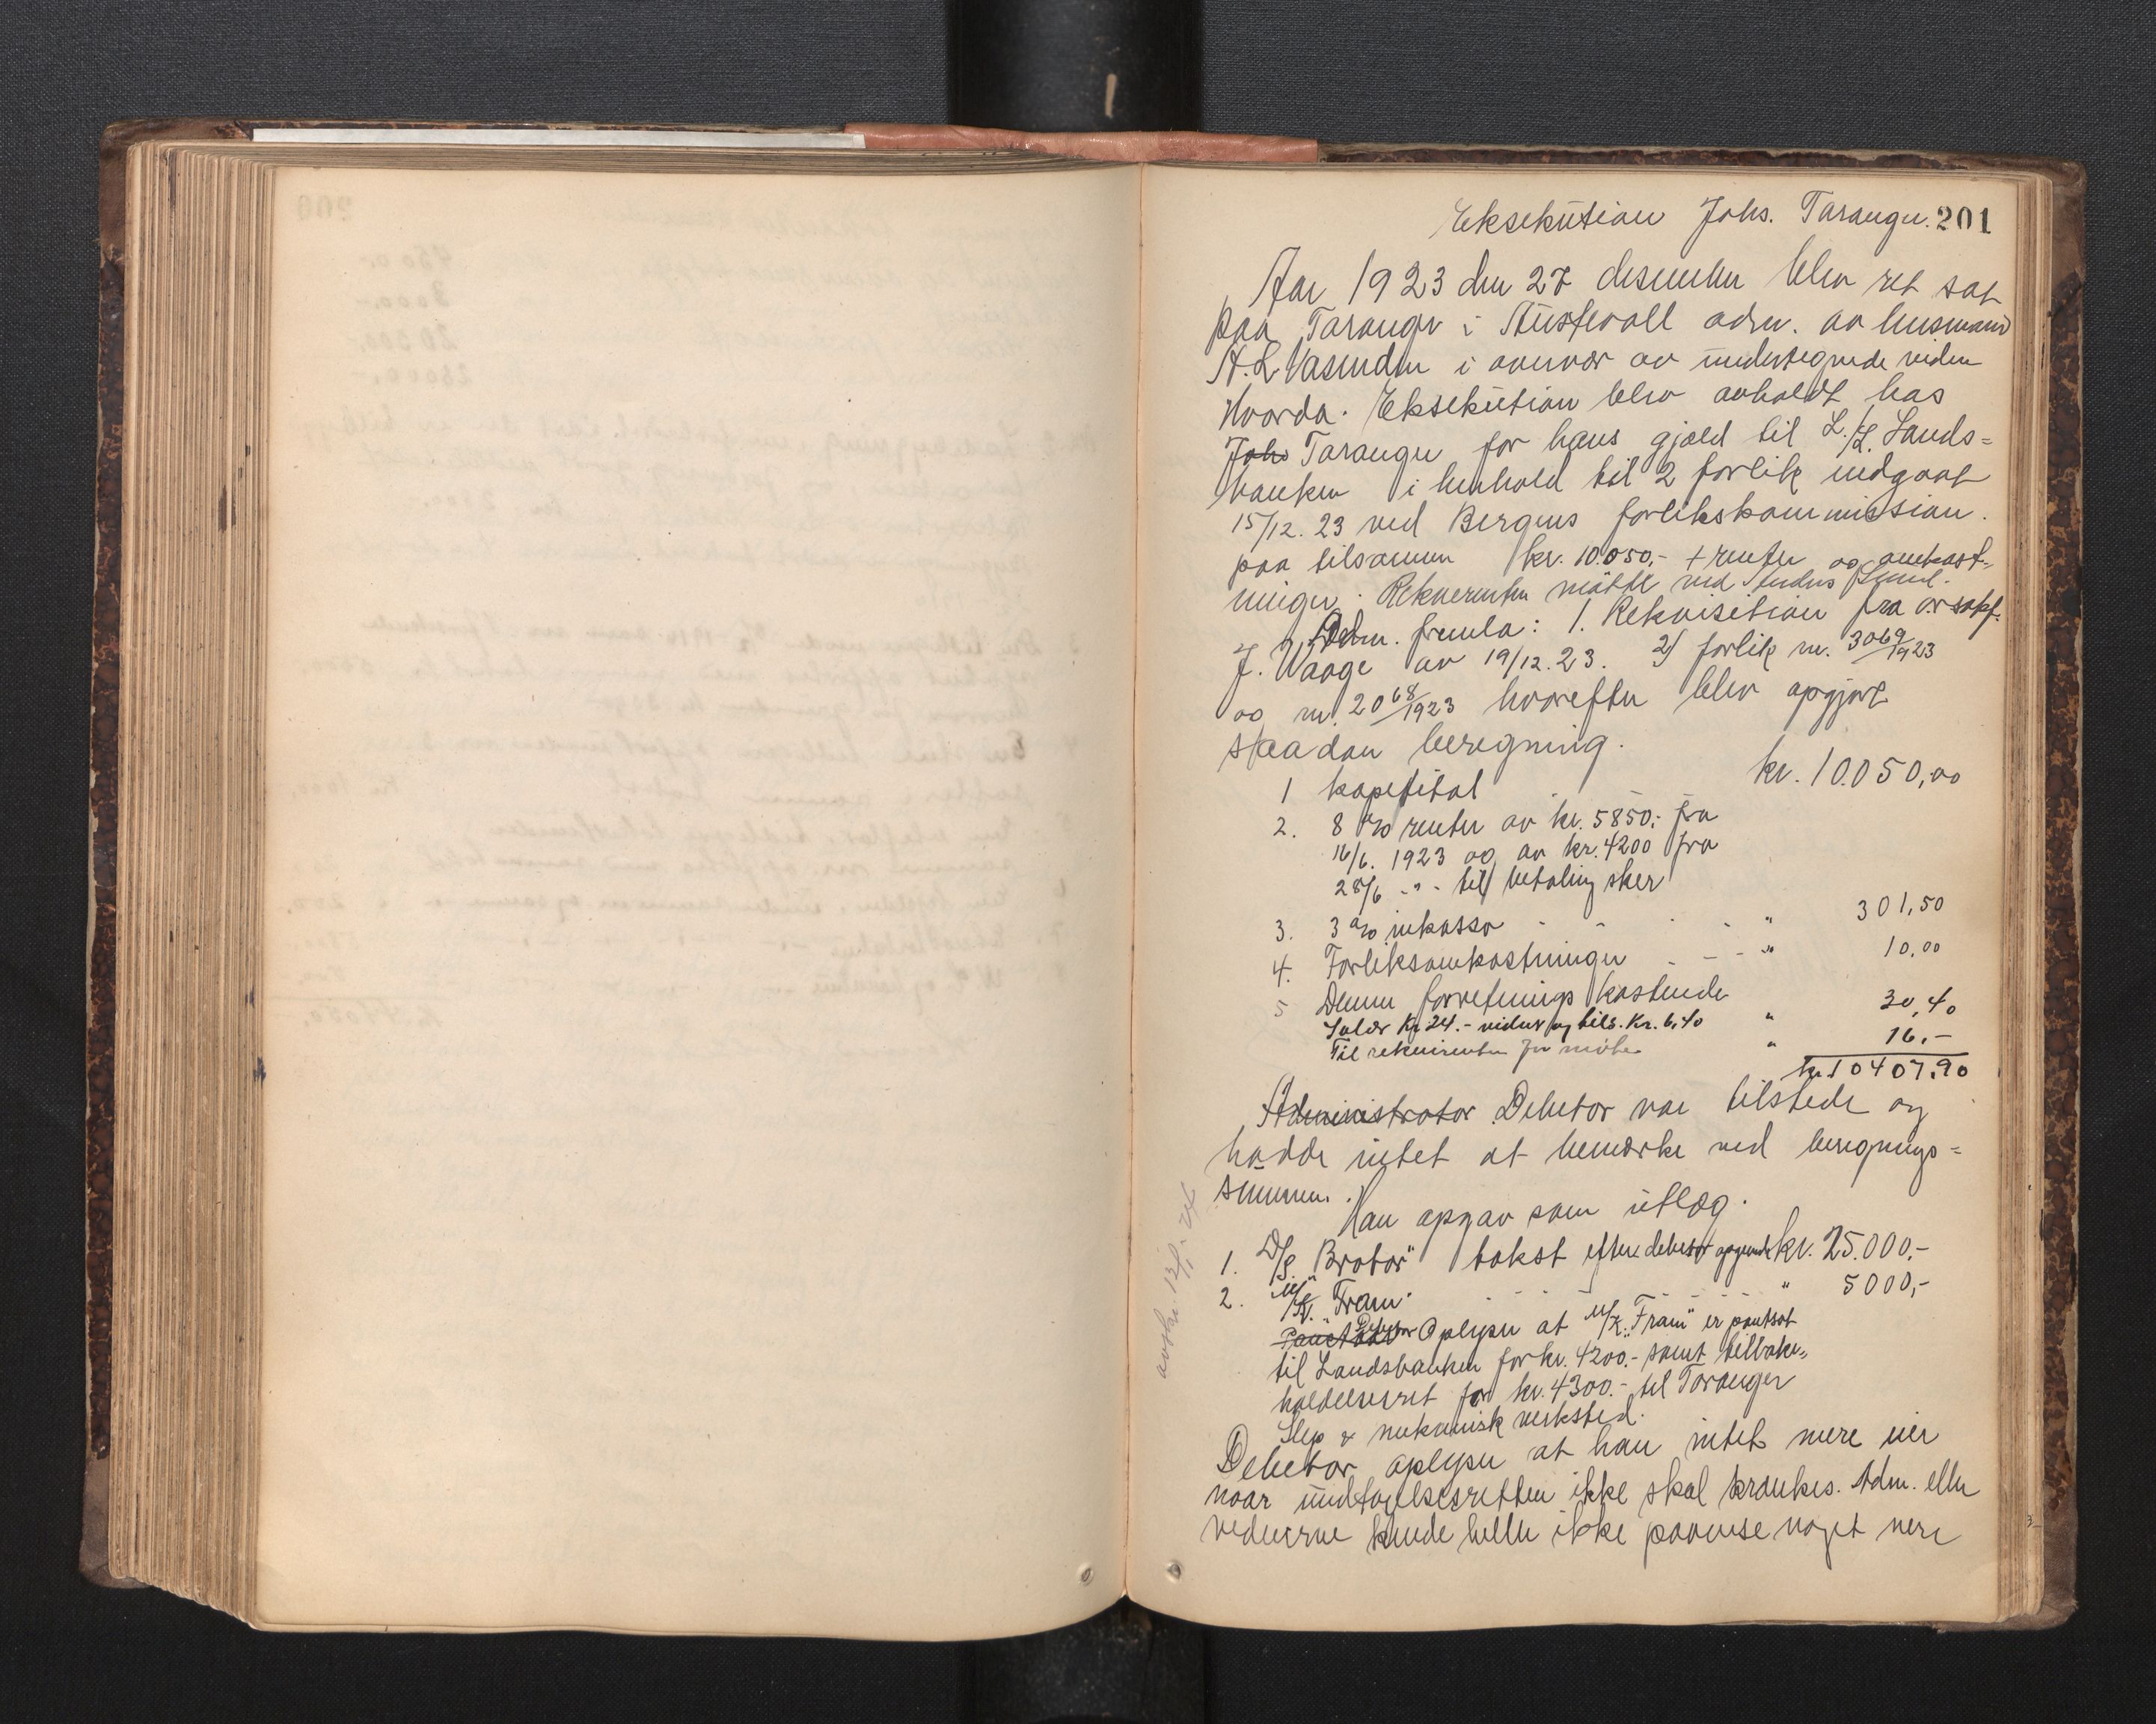 Eksekution Johs. Taranger. 201
Aar 1923 den 27 desember blev ret sat
paa Taranger i Austevoll adm. av lensmand
A. L. Vasenden i overvær av undertegnede vidner
Hvorda. Eksekution blev avholdt hos
Johs Taranger for hans gjæld til L/L. Lands=
banken i henhold til 2 forlik indgaat
15/12. 23 ved Bergens forlikskommission.
paa tilsammen kr. 10.050,- + renter og omkost=
ninger. Rekvirenten møtte ved
Adm. fremla: 1. Rekvisition fra o.r.sakf.
J. Waage av 19/12. 23. 2) forlik nr. 3069/1923
og nr. 2068/1923 hvorefter blev opgjort
saadan beregning.
1 kapital kr. 10.050,00
2. 8 % renter av kr. 5850,- fra
16/6. 1923 og av kr. 4200 fra
28/6 -"- til betaling sker
3. 3 % inkasso - - - - " 301,50
4. Forliksomkostninger - - - " 10,00
5 Denne forretnings kostende
Salær Kr 24.- vidner og bils. Kr. 6,40 " 30,40
Til rekvirenten for møte " 16.-
kr. 10407,90
Administrator Debetor var tilstede og
hadde intet at bemerke ved beregnings=
summen.
Han opgav som utlæg.
1. D/S. "Brator" takst efter debetor opgivende kr. 25.000,-
2. M/K. "Fram" - - - - - " 5000,-
Debetor Oplyser at M/K. "Fram" er pantsat
til Landsbanken for kr. 4200.- samt tilbake=
holdelsesret for kr. 4300.- til Taranger
Slip & mekanisk verksted.
Debetor oplyser at han intet mere eier
naar undtagelsesretten ikke skal krænkes. Adm. eller
vidnerne kunde heller ikke paavise noget mere